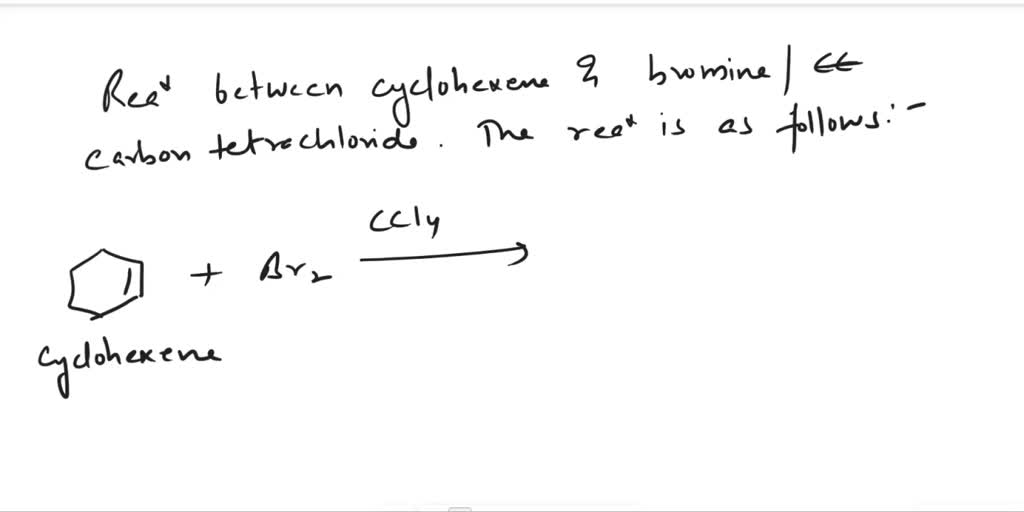 Rea* between cyclohexene & bromine / CC
carbon tetrachloride. The rea* is as follows:-
CCl4
+ Br2
cyclohexene